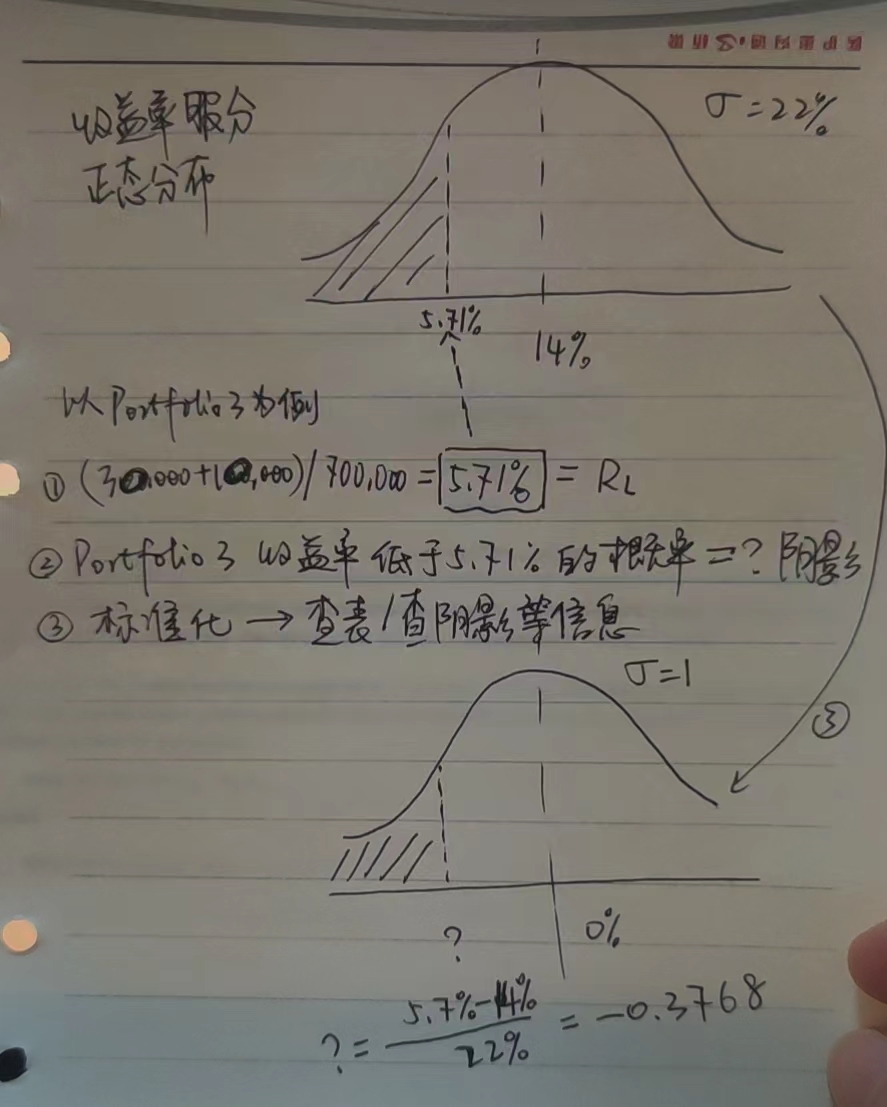 收益率服分
正态分布
σ=22%
5.71%
14%
以Portfolio 3为例
① (30,000+10,000)/700,000=5.71%=RL
② Portfolio 3 收益率低于5.71%的概率=?阴影
③ 标准化→查表/查阴影等信息
σ=1
③
?
0%
?= 5.7%-14% / 22% = -0.3768